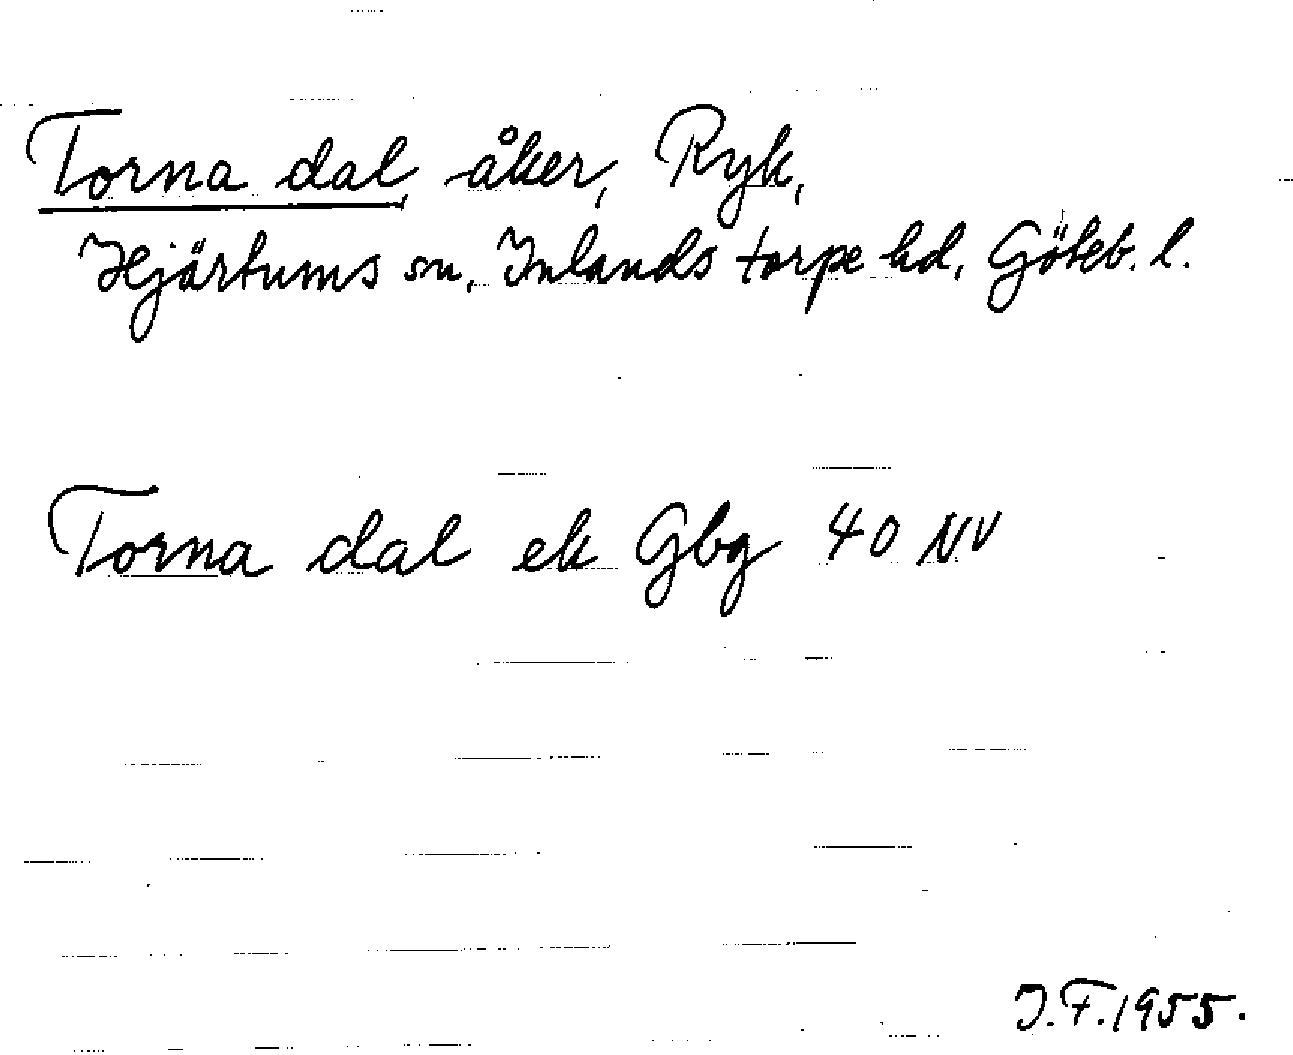 Torna dal, åker, Ryk,
Hjärtums sn, Inlands torpe hd, Göteb. l.
Torna dal ek Gbg 40 NV
J.F. 1955.